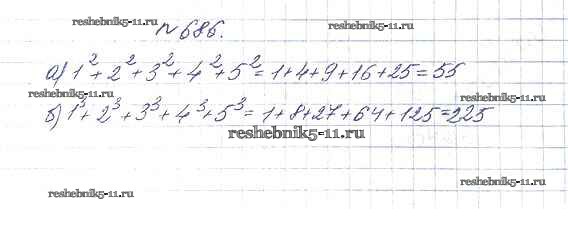 reshebnik5-11.ru
№686.
reshebnik5-11.ru
а) 1² + 2² + 3² + 4² + 5² = 1+4+9+16+25 = 55
reshebnik5-11.ru
reshebnik5-11.ru
б) 1³ + 2³ + 3³ + 4³ + 5³ = 1+8+27+64+125 = 225
reshebnik5-11.ru
reshebnik5-11.ru
reshebnik5-11.ru